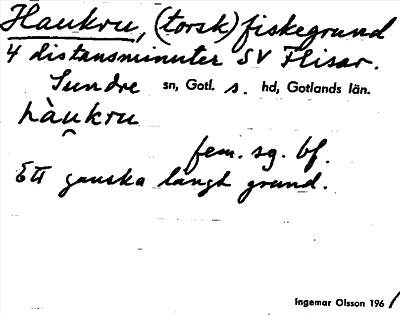 Haukru, (torsk) fiskegrund
4 distansminuter SV Flisar.
Sundre sn, Gotl. s. hd, Gotlands län.
hàu̯kru
fem. sg. bf.
Ett ganska långt grund.
Ingemar Olsson 1961